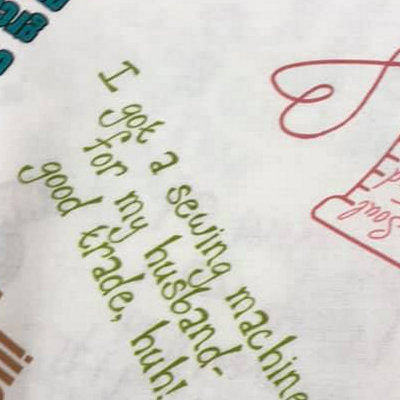 I got a sewing machine
for my husband-
good trade, huh!
Soul